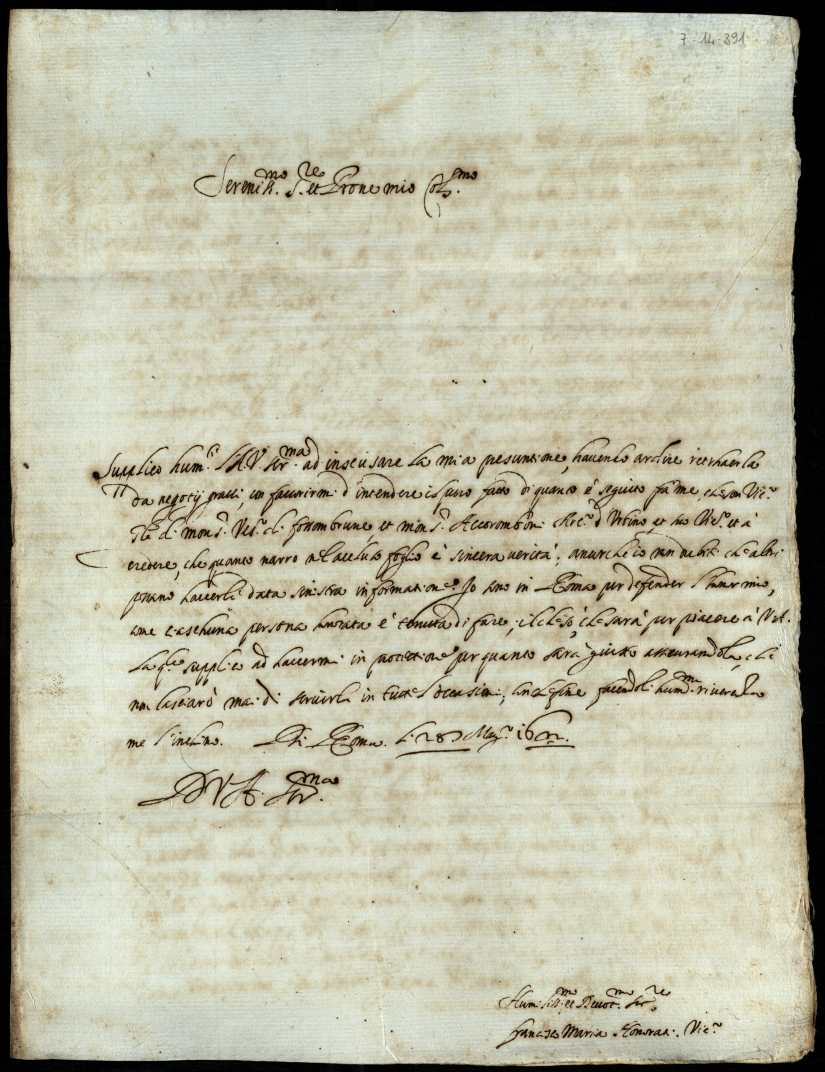 7-14-391
Sereniss.mo S.re et Prone mio Col.mo
Supplico hum.te l'A.V. Ser.ma ad inscusare la mia presuntione, havendo ardire retrhaerla
da negotij gravi, in favorirmi d'intendere il puro fatto di quanto è seguito fa me, che son Vic.o
G.le di mons.r Vesc.o di fossombrune et mons.r Accorombon Arc.o d'Urbino, et suo Vic.o et à
credere, che quanto narro nel accluso foglio è sincera verità, ancorche io non dubiti che altri
possano haverli data sinistra informatione. Io sono in Roma per defender l'honor mio,
come ciaschuna persona honorata è tenuta di fare, il che so, che sarà per piacere à V.A.
la q.le supplico ad havermi in protettione per quanto sarà giusto assicurandola, che
non lasciarò mai di servirla in tutte l'occasioni, con che fine facendoli hum.ma riverenza
me l'inchino. Di Roma li 28 Mag.o 1612.
D V A. Ser.ma
Humiliss.mo et Devot.mo Ser.re
Franc.o Maria Honorati Vic.o